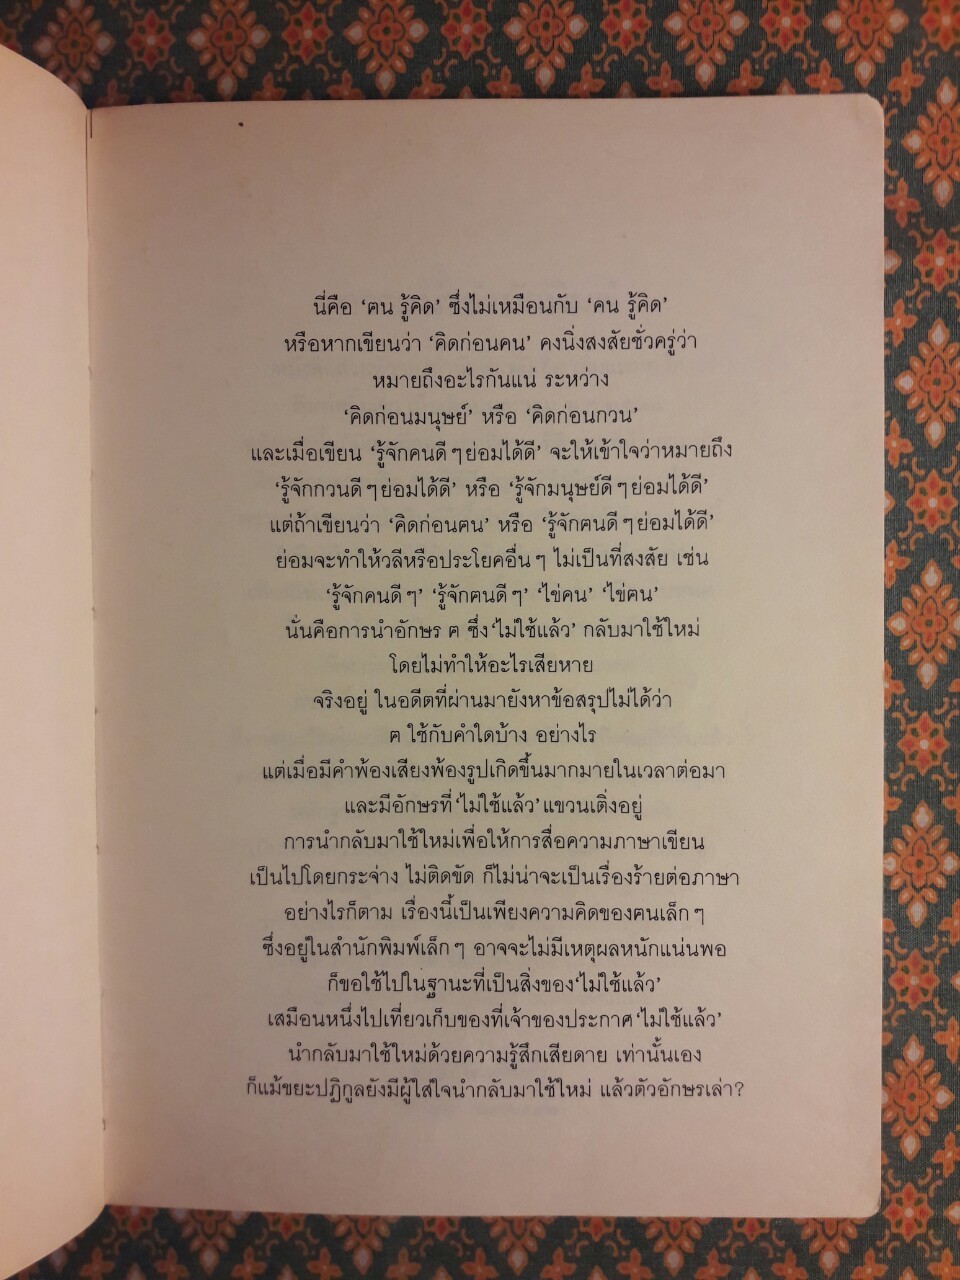 นี่คือ ‘ฅน รู้คิด’ ซึ่งไม่เหมือนกับ ‘คน รู้คิด’
หรือหากเขียนว่า ‘คิดก่อนคน’ คงนิ่งสงสัยชั่วครู่ว่า
หมายถึงอะไรกันแน่ ระหว่าง
‘คิดก่อนมนุษย์’ หรือ ‘คิดก่อนกวน’
และเมื่อเขียน ‘รู้จักคนดีๆย่อมได้ดี’ จะให้เข้าใจว่าหมายถึง
‘รู้จักกวนดีๆย่อมได้ดี’ หรือ ‘รู้จักมนุษย์ดีๆย่อมได้ดี’
แต่ถ้าเขียนว่า ‘คิดก่อนฅน’ หรือ ‘รู้จักฅนดีๆย่อมได้ดี’
ย่อมจะทำให้วลีหรือประโยคอื่นๆ ไม่เป็นที่สงสัย เช่น
‘รู้จักคนดีๆ’ ‘รู้จักฅนดีๆ’ ‘ไข่คน’ ‘ไข่ฅน’
นั่นคือการนำอักษร ฅ ซึ่ง‘ไม่ใช้แล้ว’ กลับมาใช้ใหม่
โดยไม่ทำให้อะไรเสียหาย
จริงอยู่ ในอดีตที่ผ่านมายังหาข้อสรุปไม่ได้ว่า
ฅ ใช้กับคำใดบ้าง อย่างไร
แต่เมื่อมีคำพ้องเสียงพ้องรูปเกิดขึ้นมากมายในเวลาต่อมา
และมีอักษรที่‘ไม่ใช้แล้ว’แขวนเติ่งอยู่
การนำกลับมาใช้ใหม่เพื่อให้การสื่อความภาษาเขียน
เป็นไปโดยกระจ่าง ไม่ติดขัด ก็ไม่น่าจะเป็นเรื่องร้ายต่อภาษา
อย่างไรก็ตาม เรื่องนี้เป็นเพียงความคิดของฅนเล็กๆ
ซึ่งอยู่ในสำนักพิมพ์เล็กๆ อาจจะไม่มีเหตุผลหนักแน่นพอ
ก็ขอใช้ไปในฐานะที่เป็นสิ่งของ‘ไม่ใช้แล้ว’
เสมือนหนึ่งไปเที่ยวเก็บของที่เจ้าของประกาศ‘ไม่ใช้แล้ว’
นำกลับมาใช้ใหม่ด้วยความรู้สึกเสียดาย เท่านั้นเอง
ก็แม้ขยะปฏิกูลยังมีผู้ใส่ใจนำกลับมาใช้ใหม่ แล้วตัวอักษรเล่า?